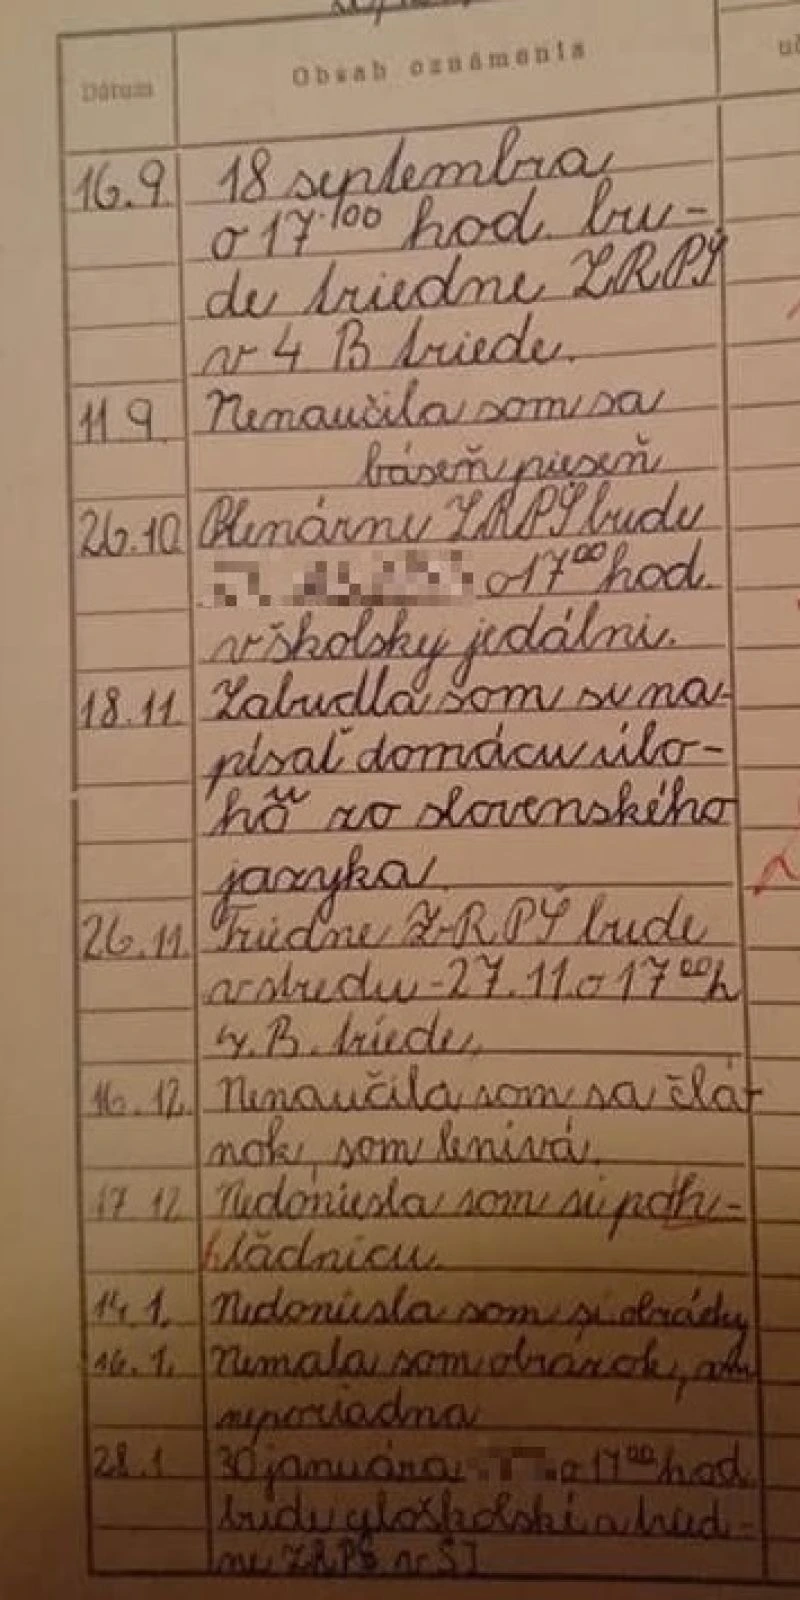 Dátum Obsah oznámenia
16.9. 18 septembra
o 17.00 hod. bu-
de triedne ZRPŠ
v 4 B triede.
11 9 Nenaučila som sa
báseň, pieseň
26.10 Plenárne ZRPŠ bude
o 17 00 hod.
v školsky jedálni.
18.11. Zabudla som si na-
písať domácu úlo-
hů zo slovenského
jazyka
26.11. Triedne ZRPŠ bude
v stredu - 27.11. o 17 00 h
v 4. B. triede,
16.12. Nenaučila som sa člá-
nok, som lenivá.
17 12. Nedoniesla som si poh-
ládnicu.
14.1. Nedoniesla som si obrázky
16.1. Nemala som obrázok, som
neporiadna
28.1 30 januára o 17 00 hod
bude a tried-
ne ZRPŠ v ŠJ